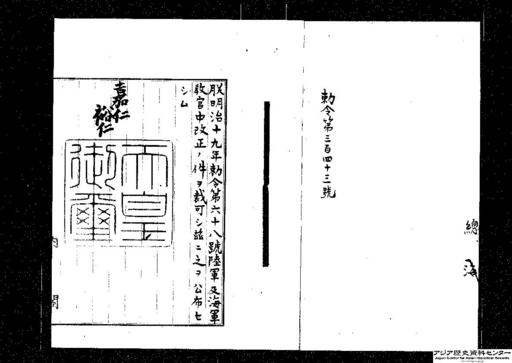 總
海
勅令第三百四十三號
朕明治十九年勅令第六十八號陸軍及海軍
教官中改正ノ件ヲ裁可シ茲ニ之ヲ公布セ
シム
嘉仁
裕仁
天皇
御璽
内
閣
アジア歴史資料センター
Japan Center for Asian Historical Records